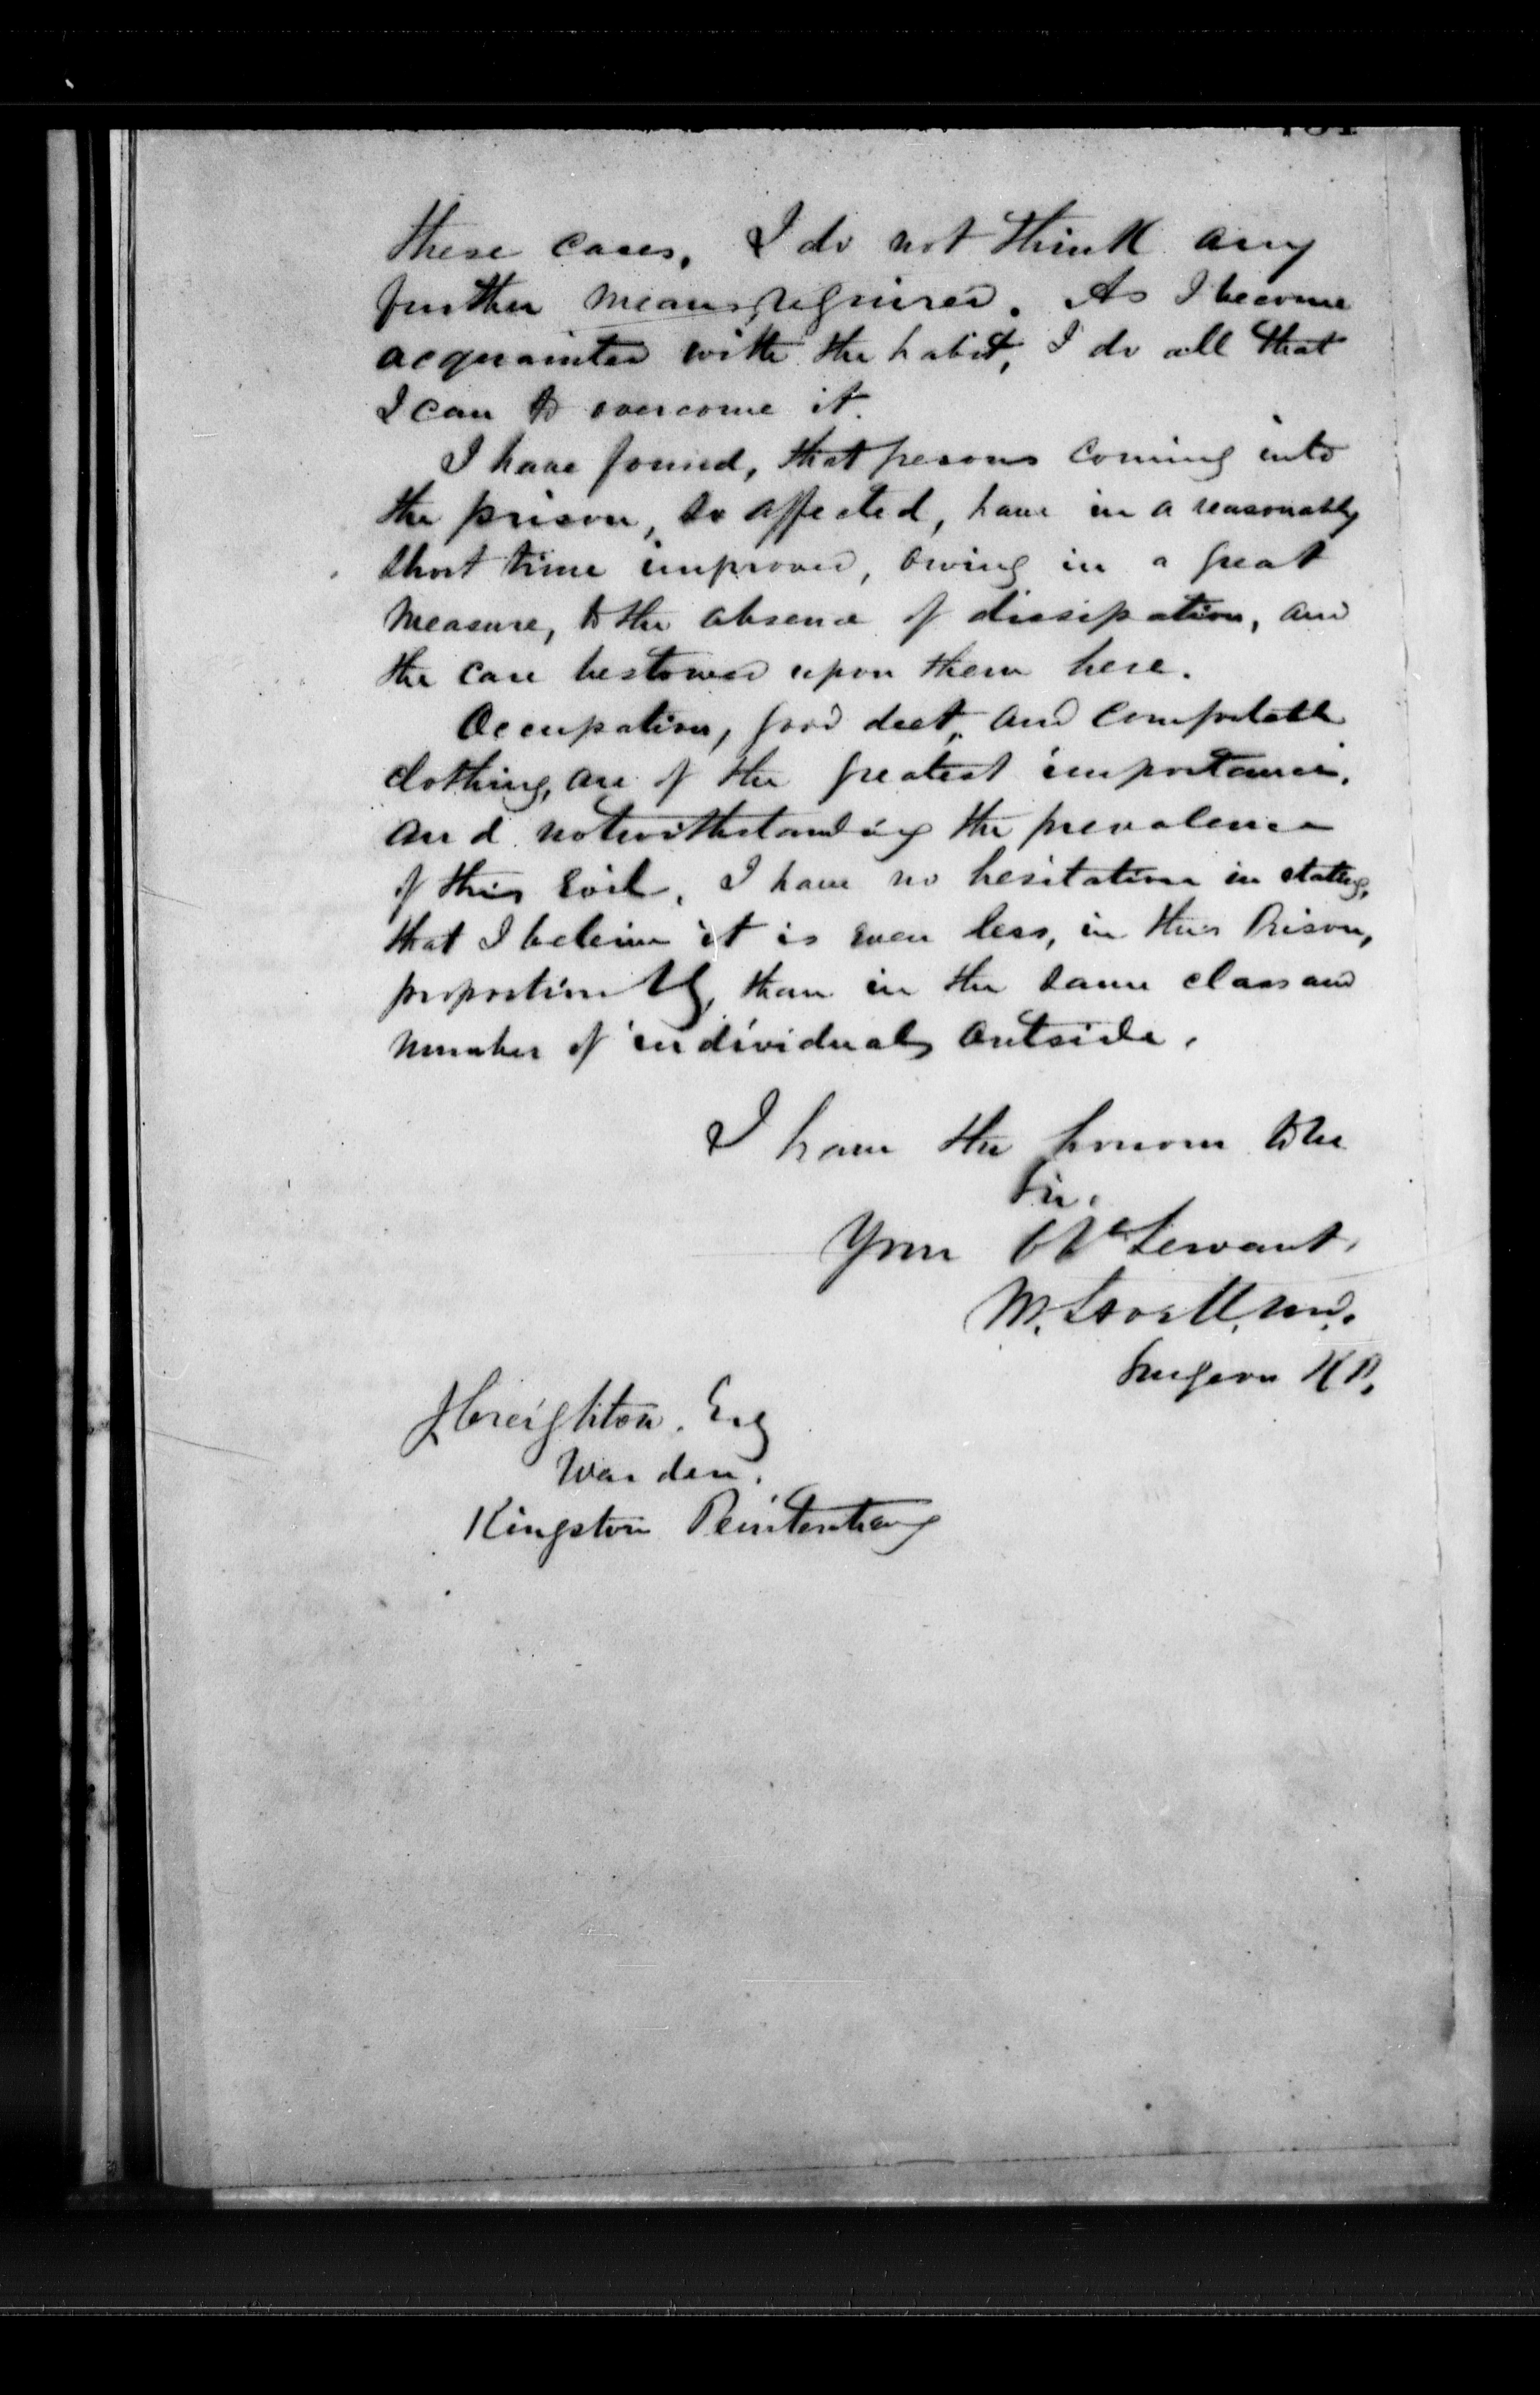 these cases. I do not think any
further means required. As I become
acquainted with the habit, I do all that
I can to overcome it.
I have found, that persons coming into
the prison, so affected, have in a reasonably
short time improved, owing in a great
measure, to the absence of dissipation, and
the care bestowed upon them here.
Occupation, good diet, and comfortable
clothing, are of the greatest importance,
and notwithstanding the prevalence
of this evil, I have no hesitation in stating,
that I believe it is even less, in this Prison,
proportionately, than in the same class and
number of individuals outside.
I have the honour to be
Sir.
Your Obt Servant,
M. Lavell, M.D.
Surgeon K.P.
J Creighton. Esq
Warden.
Kingston Penitentiary